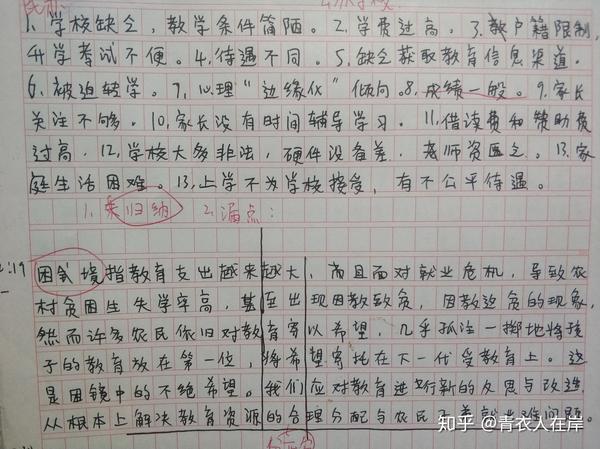 1.学校缺乏，教学条件简陋。2.学费过高。3.教户籍限制，
升学考试不便。4.待遇不同。5.缺乏获取教育信息渠道。
6.被迫转学。7.心理"边缘化"倾向。8.成绩一般。9.家长
关注不够。10.家长没有时间辅导学习。11.借读费和赞助费
过高。12.学校大多非法，硬件设备差，老师资匮乏。13.家
庭生活困难。13.上学不为学校接受，有不公平待遇。
1.未归纳 2.漏点：
2:19
困境指教育支出越来越大，而且面对就业危机，导致农
村贫困生失学率高，甚至出现因教致贫，因教返贫的现象，
然而许多农民依旧对教育寄以希望，几乎孤注一掷地将孩
子的教育放在第一位，将希望寄托在下一代受教育上。这
是困镜中的不绝希望。我们应对教育进行新的反思与改造，
从根本上解决教育资源的合理分配与农民子弟就业难问题。
知乎 @青衣人在岸